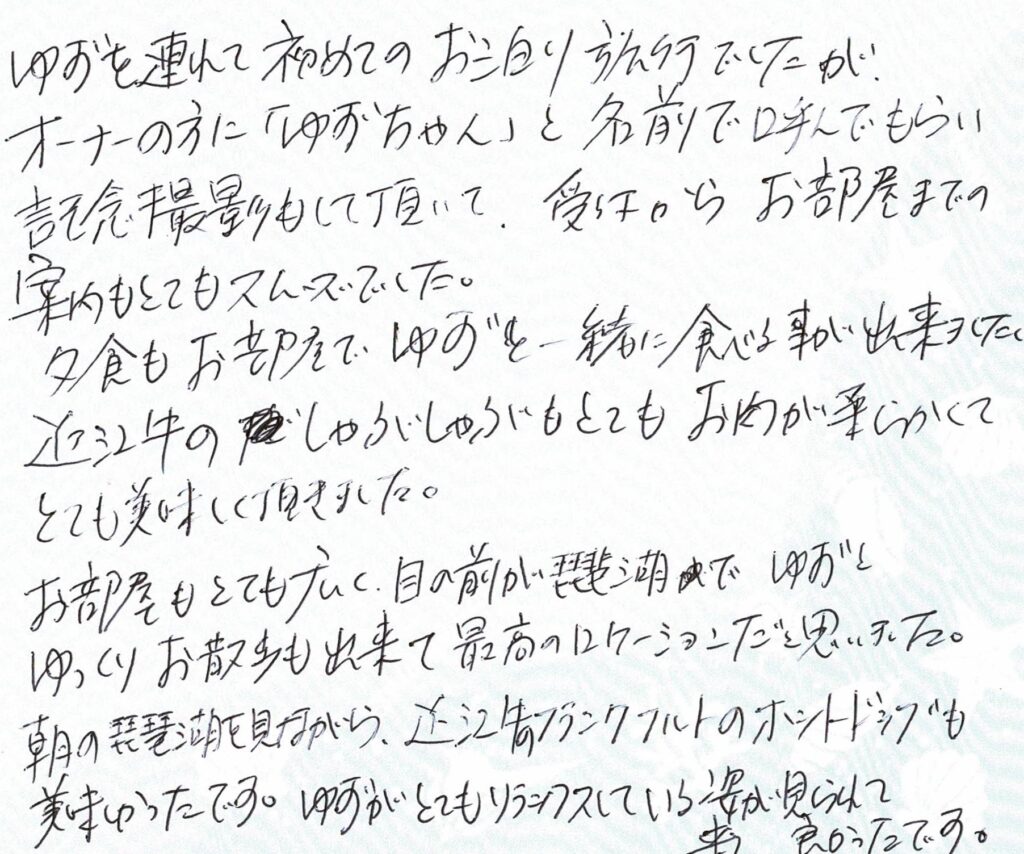 ゆずを連れて初めてのお泊り旅行でしたが、
オーナーの方に「ゆずちゃん」と名前で呼んでもらい
記念撮影もして頂いて、受付からお部屋までの
案内もとてもスムーズでした。
夕食もお部屋でゆずと一緒に食べる事が出来ました。
近江牛のしゃぶしゃぶもとてもお肉が柔らかくて
とても美味しく頂きました。
お部屋もとても広く、目の前が琵琶湖でゆずと
ゆっくりお散歩も出来て最高のロケーションだと思いました。
朝の琵琶湖を見ながら、近江牛フランクフルトのホットドッグも
美味かったです。ゆずがとてもリラックスしている姿が見られて
来て良かったです。